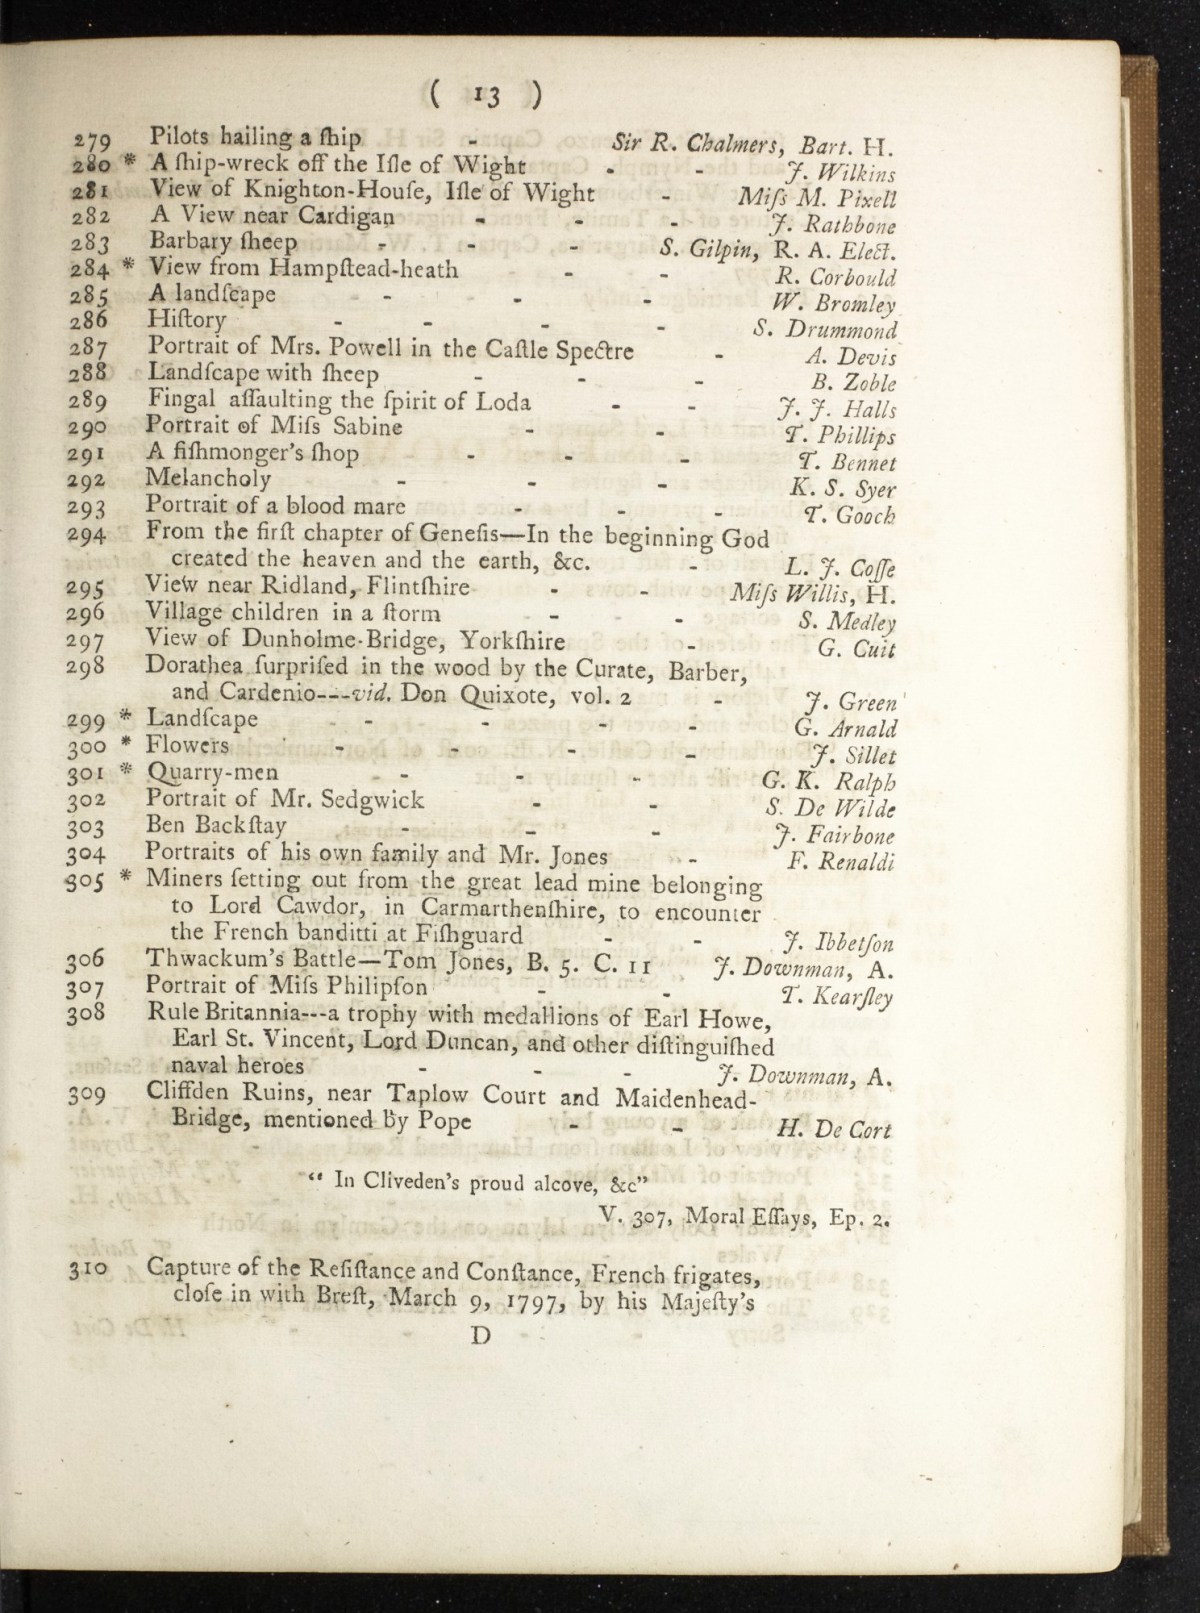 ( 13 )
279 Pilots hailing a ſhip - Sir R. Chalmers, Bart. H.
280 * A ſhip-wreck off the Iſle of Wight - - J. Wilkins
281 View of Knighton-Houſe, Iſle of Wight - Miſs M. Pixell
282 A View near Cardigan - - - J. Rathbone
283 Barbary ſheep - - - S. Gilpin, R. A. Elect.
284 * View from Hampſtead-heath - - R. Corbould
285 A landſcape - - - W. Bromley
286 Hiſtory - - - - S. Drummond
287 Portrait of Mrs. Powell in the Caſtle Spectre - A. Devis
288 Landſcape with ſheep - - - B. Zoble
289 Fingal aſſaulting the ſpirit of Loda - - J. J. Halls
290 Portrait of Miſs Sabine - - T. Phillips
291 A fiſhmonger's ſhop - - - T. Bennet
292 Melancholy - - - K. S. Syer
293 Portrait of a blood mare - - - T. Gooch
294 From the firſt chapter of Geneſis—In the beginning God
created the heaven and the earth, &c. - L. J. Coſſe
295 View near Ridland, Flintſhire - - Miſs Willis, H.
296 Village children in a ſtorm - - - S. Medley
297 View of Dunholme-Bridge, Yorkſhire - G. Cuit
298 Dorathea ſurpriſed in the wood by the Curate, Barber,
and Cardenio---vid. Don Quixote, vol. 2 - J. Green
299 * Landſcape - - - - G. Arnald
300 * Flowers - - - - J. Sillet
301 * Quarry-men - - - G. K. Ralph
302 Portrait of Mr. Sedgwick - - S. De Wilde
303 Ben Backſtay - - - J. Fairbone
304 Portraits of his own family and Mr. Jones - F. Renaldi
305 * Miners ſetting out from the great lead mine belonging
to Lord Cawdor, in Carmarthenſhire, to encounter
the French banditti at Fiſhguard - - J. Ibbetſon
306 Thwackum's Battle—Tom Jones, B. 5. C. 11 J. Downman, A.
307 Portrait of Miſs Philipſon - - T. Kearſley
308 Rule Britannia---a trophy with medallions of Earl Howe,
Earl St. Vincent, Lord Duncan, and other diſtinguiſhed
naval heroes - - - J. Downman, A.
309 Cliffden Ruins, near Taplow Court and Maidenhead-
Bridge, mentioned by Pope - - H. De Cort
“ In Cliveden's proud alcove, &c”
V. 307, Moral Eſſays, Ep. 2.
310 Capture of the Reſiſtance and Conſtance, French frigates,
cloſe in with Breſt, March 9, 1797, by his Majeſty's
D